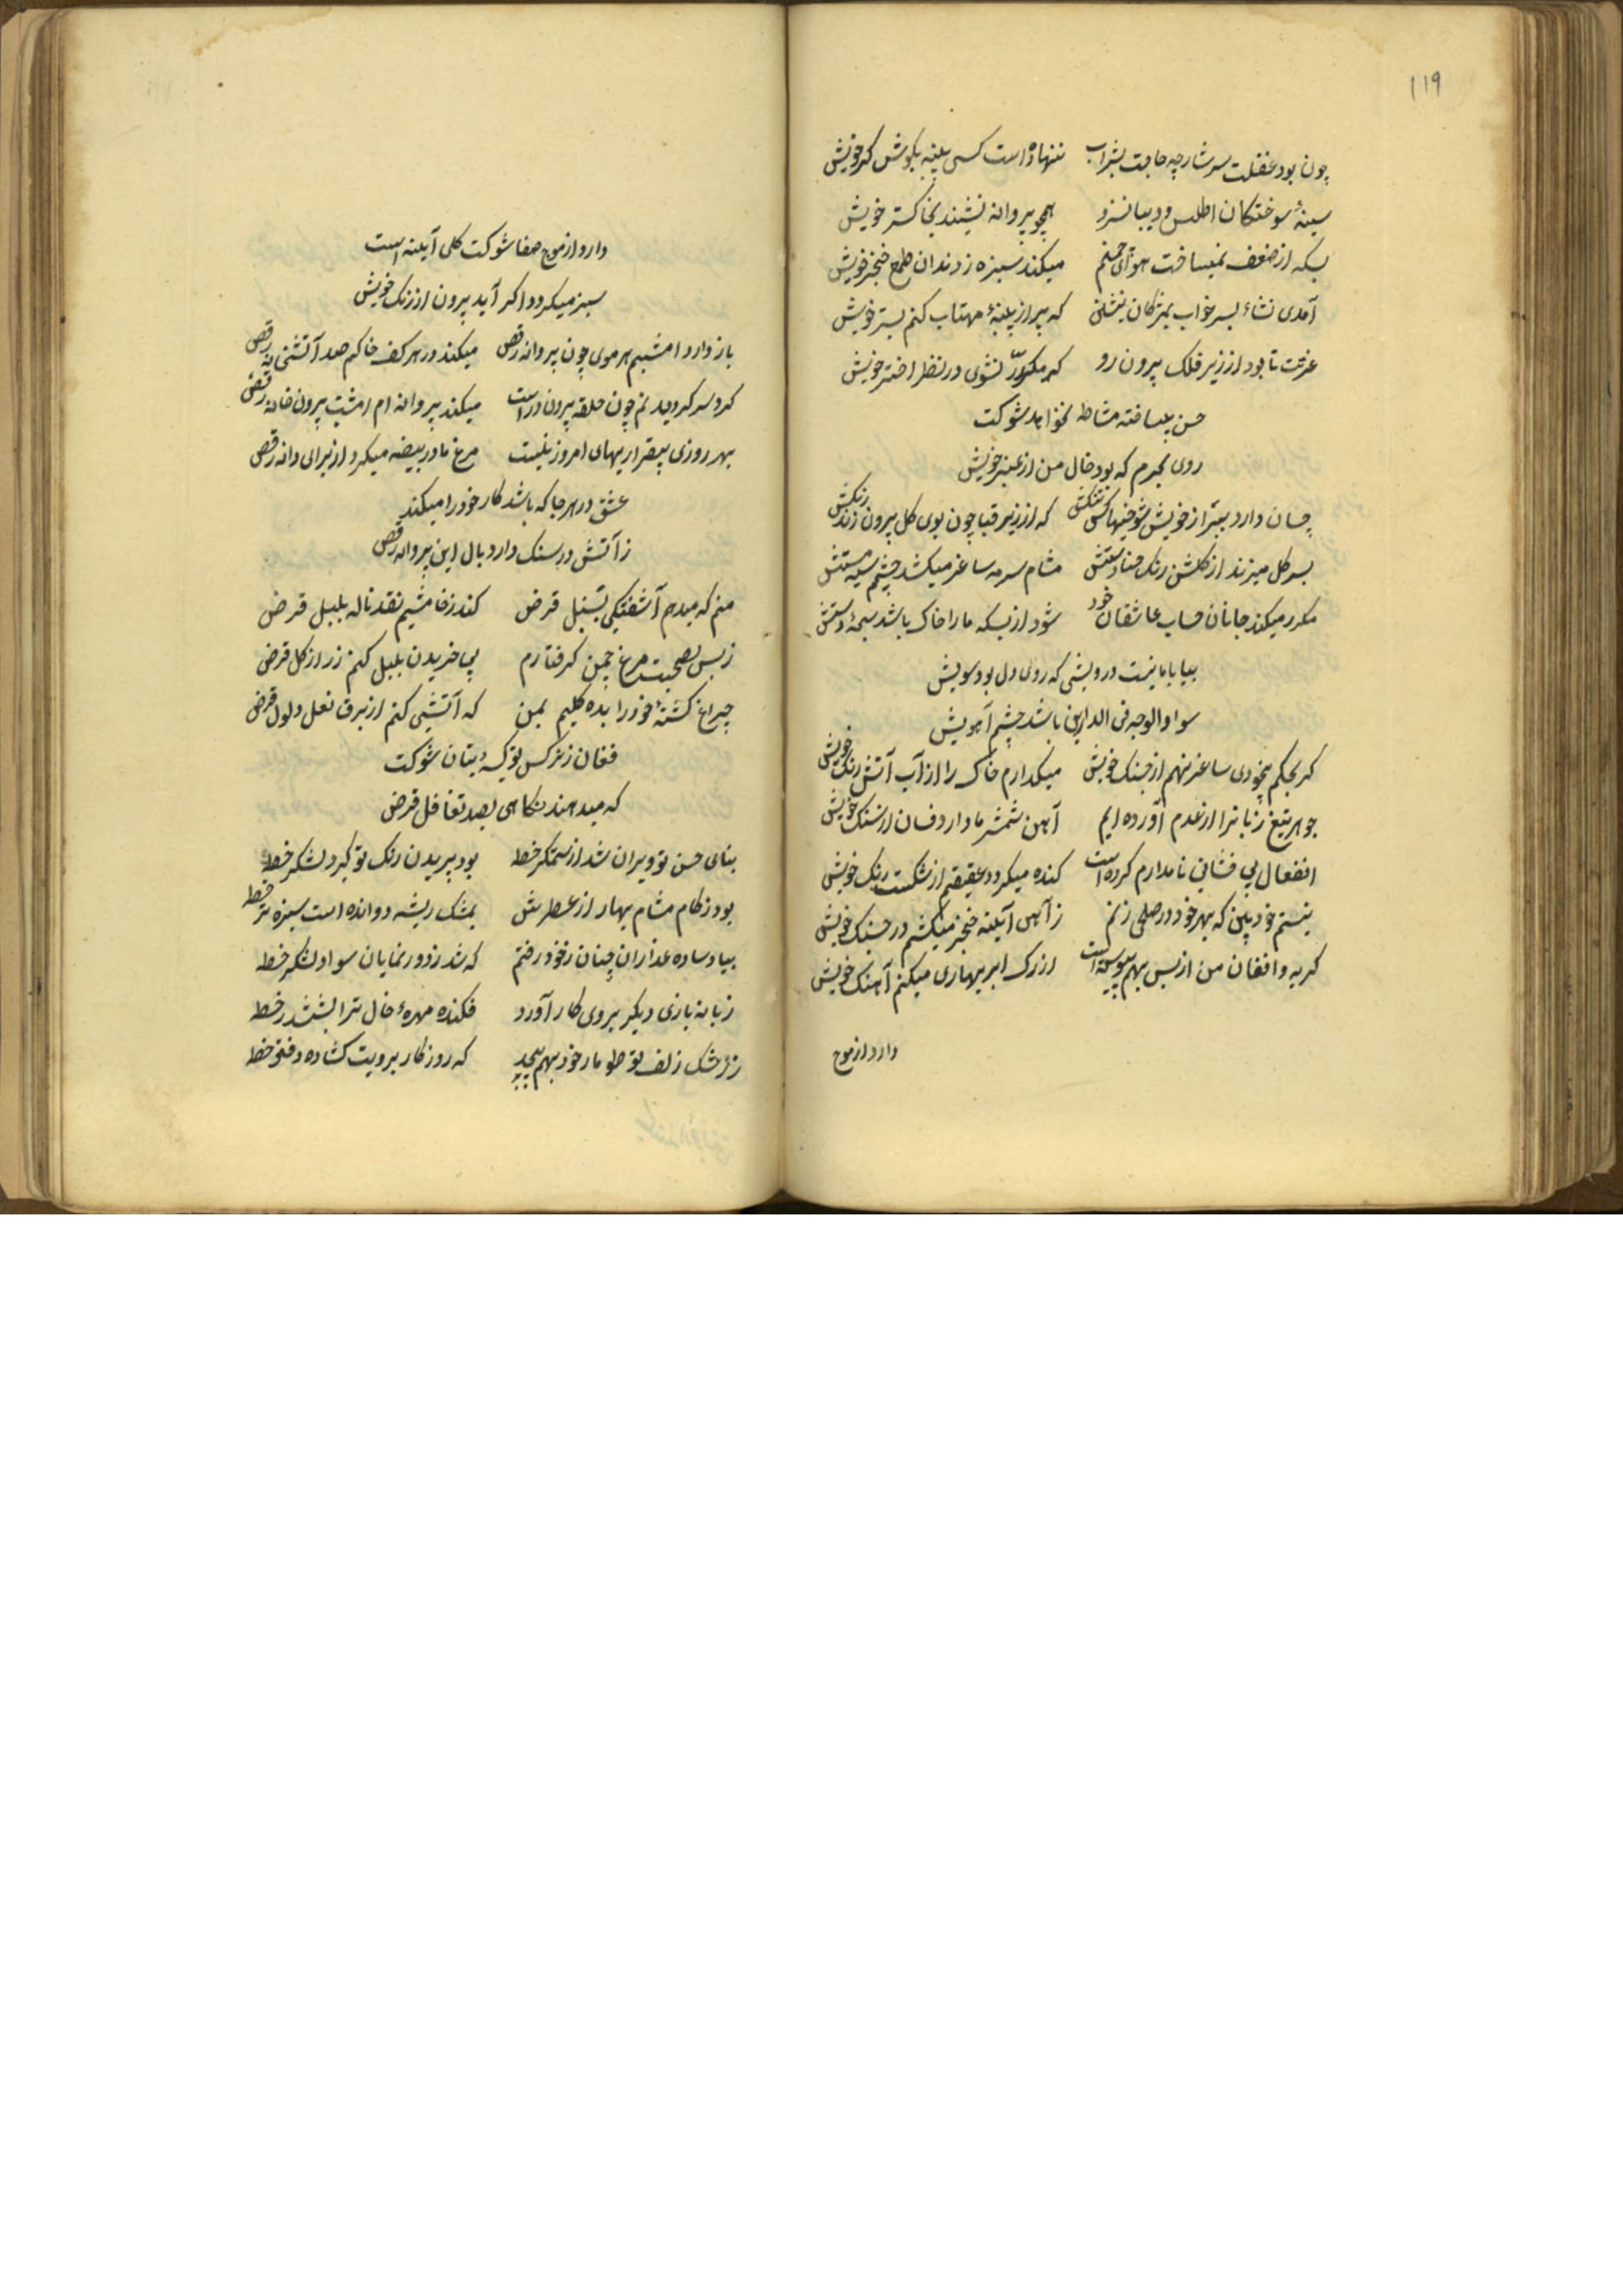 119
چون بود غفلت سرشار چه حاجت بشراب ننهاده است کسی پنبه بکوش کر خویش
سینهٔ سوختکان اطلس و دیبا نسزد همچو پروانه نشیند بخاکستر خویش
بسکه از ضعف نمیسافت هوای میکند سبزه ز دندان طمع خنجر خویش
آمدی نشاء بسر خواب بمژکان که پر از پنبهٔ مهتاب کنم بستر خویش
عزمت تا بود از زیر فلک بیرون رو که مکرّر نشوی در نظر اختر خویش
حسن بیساخته مشاطه نخواهد شوکت
روی بحرم که بود خال من از عنبر خویش
چسان دارد از خویش که از زیر قبا چون بوی کل بیرون زند رنکش
بسر کل میزند از کلشن رنک حنا دستش مشام سرمه ساغر میکشد چشم سیه مستش
مکرر میکند جانان حساب عاشقان خود شود از بسکه ما را خاک باشد سبحهٔ دستش
بیا با ما درویشی که روی دل بود سویش
سواد الوجه فی الدارین باشد چشم آهویش
کر بحکم بیخودی ساغر نهم از چنک خویش میکدارم خاک را از آب آتش رنک خویش
جوهر تیغ زبانرا از عدم آورده ایم آهن شمشیر ما دارد فسان از سنک خویش
انفعال بی فشانی نامدارم کرده است کنده میکردد عقیقم از شکست رنک خویش
نیستم خود بین که بهر خود در صلحی زنم ز آهن آیینه خنجر میکشم در جنک خویش
کریه و افغان من از بس بهم پیوسته است از رک ابر بهاری میکنم آهنک خویش
دارد از موج
دارد از موج صفا شوکت کلی آیینه است
سبز میکردد اکر آید برون از زنک خویش
باز دارد امشبم هر موی چون پروانه رقص میکند در هر کف خاکم صد رقص
کرد سر کردیدنم چون حلقه بیرون در است میکند پروانه ام امشب بیرون خانه رقص
بهر روزی بیقراریهای امروز نیست مرغ ما در بیضه میکرد از برای دانه رقص
عشق در هر جا که باشد کار خود را میکند
ز آتش در سنک دارد بال این پروانه رقص
منم که میدهم آشفتکی بسنبل قرض کند ز خامشیم نقد ناله بلبل قرض
ز بس بصحبت مرغ چمن کرفتارم پی خریدن بلبل کنم زر از کل قرض
چراغ کشتهٔ خود را بده کلیم بمن که آتشی کنم از برق نعل دلدل قرض
فغان ز نرکس بتان شوکت
که میدهند نکاهی بصد تغافل قرض
بنای حسن تو ویران شد از ستمکر خط بود پریدن رنک تو کرد لشکر خط
بود زکام مشام بهار از عطرش بمشک ریشه دوانده است سبزه تر خط
بیاد ساده عذاران چنان ز خود رفتم که شد ز دور نمایان سواد لشکر خط
زمانه بازی دیکر بروی کار آورد فکنده مهرهٔ خال ترا بششدر خط
ز رشک زلف تو طومار خود بهم پیچید که روزکار برویت کشاده دفتر خط